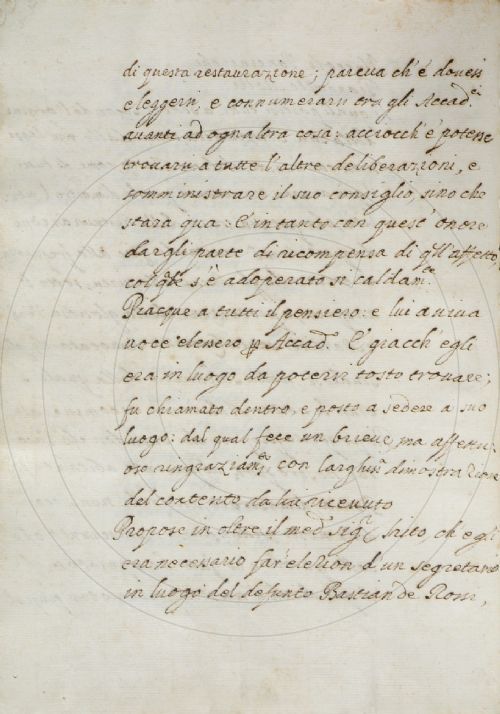 di questa restaurazione; pareva ch'e' dovessi
eleggersi, e connumerarsi tra gli Accad.ci
avanti ad ogn'altra cosa: acciocch'e' potesse
trovarsi a tutte l'altre deliberazioni, e
somministrare il suo consiglio, sino che
starà qua: E intanto con quest'onore
dargli parte di ricompensa di q.ll'affetto,
col q.le s'è adoperato sì caldam.te
Piacque a tutti il pensiero: e lui a viva
voce elessero p Accad.co E giacch'egli
era in luogo da potersi tosto trovare;
fu chiamato dentro, e posto a sedere a suo
luogo: dal qual fece un brieve, ma affettu-
oso ringraziam.to con larghiss.a dimostrazione
del contento da lui ricevuto
Propose in oltre il med.o sig.r ch'egli
era necessario far elezion d'un segretario
in luogo del defunto Bastian de Rossi,